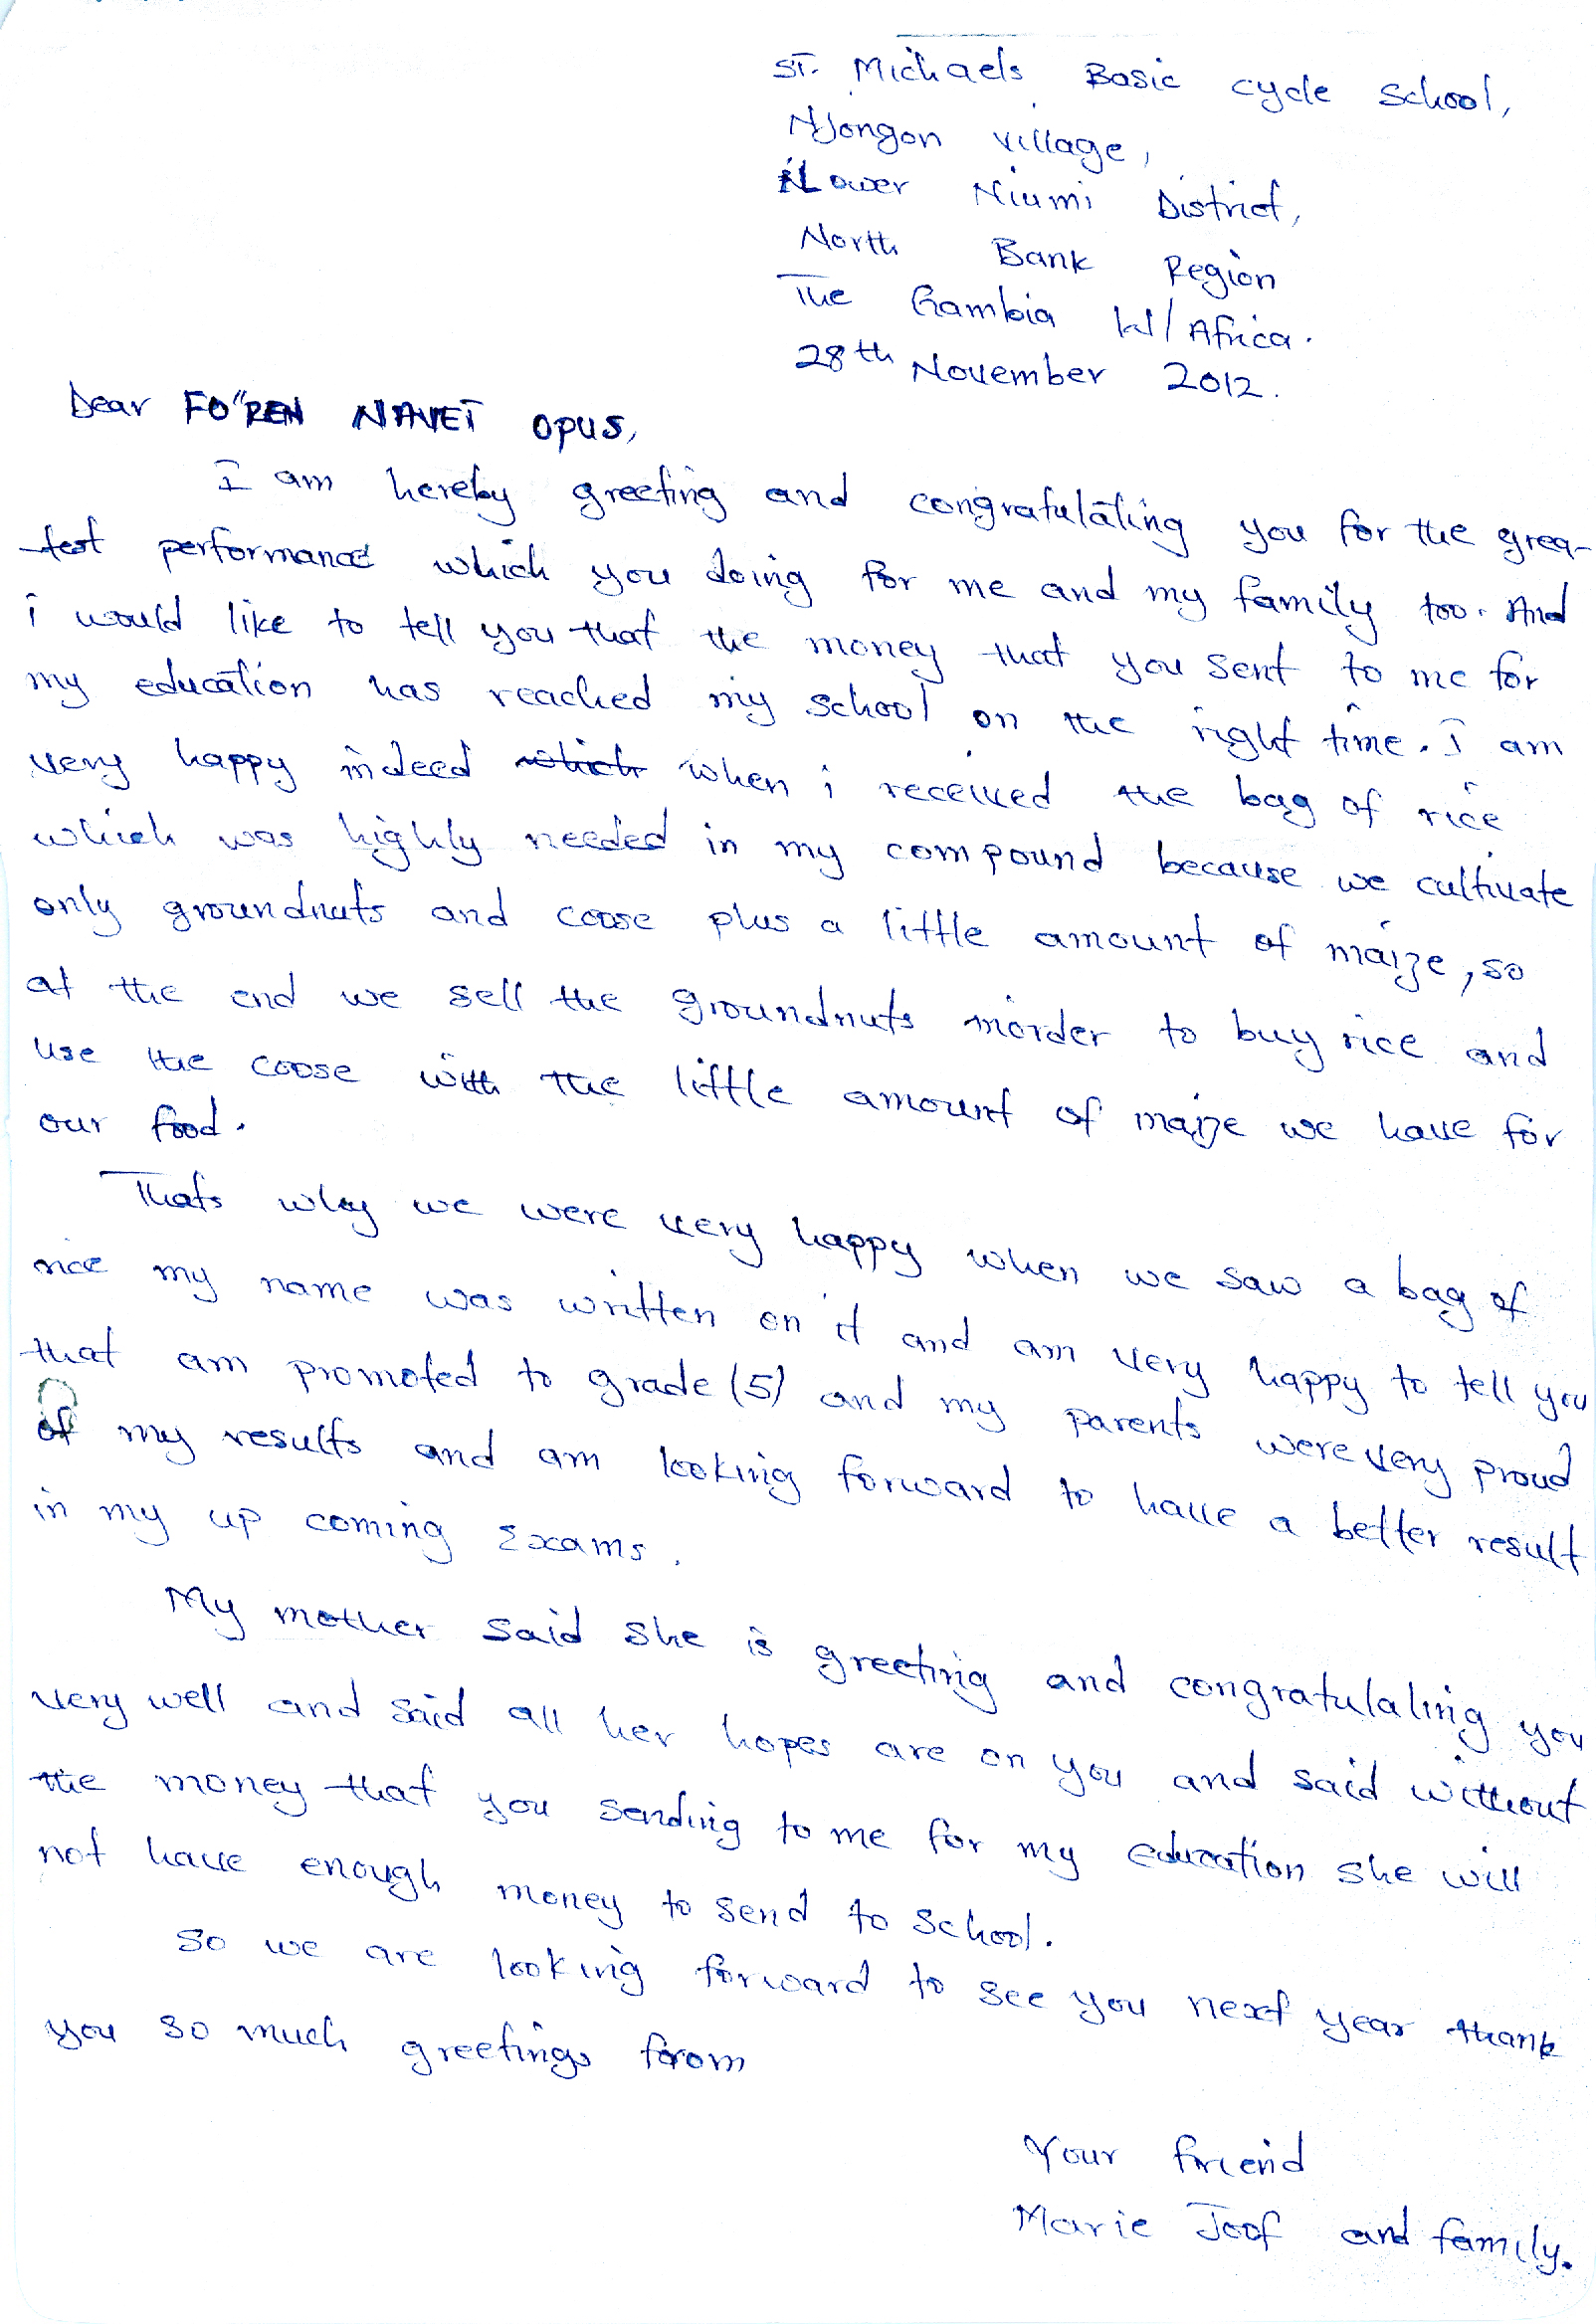 ST. Michaels Basic cycle school,
Njongon village,
Lower Niumi District,
North Bank Region
The Gambia W/Africa.
28th November 2012.
Dear FO"REN NAVET OPUS,
I am hereby greeting and congratulating you for the grea-
test performance which you doing for me and my family too. And
i would like to tell you that the money that you sent to me for
my education has reached my school on the right time. I am
very happy indeed which when i received the bag of rice
which was highly needed in my compound because we cultivate
only groundnuts and coose plus a little amount of maize, so
at the end we sell the groundnuts inorder to buy rice and
use the coose with the little amount of maize we have for
our food.
Thats why we were very happy when we saw a bag of
rice my name was written on it and am very happy to tell you
that am promoted to grade (5) and my parents were very proud
of my results and am looking forward to have a better result
in my up coming Exams.
My mother said she is greeting and congratulating you
very well and said all her hopes are on you and said without
the money that you sending to me for my education she will
not have enough money to send to school.
So we are looking forward to see you next year thank
you so much greetings from
Your friend
Marie Joof and family.